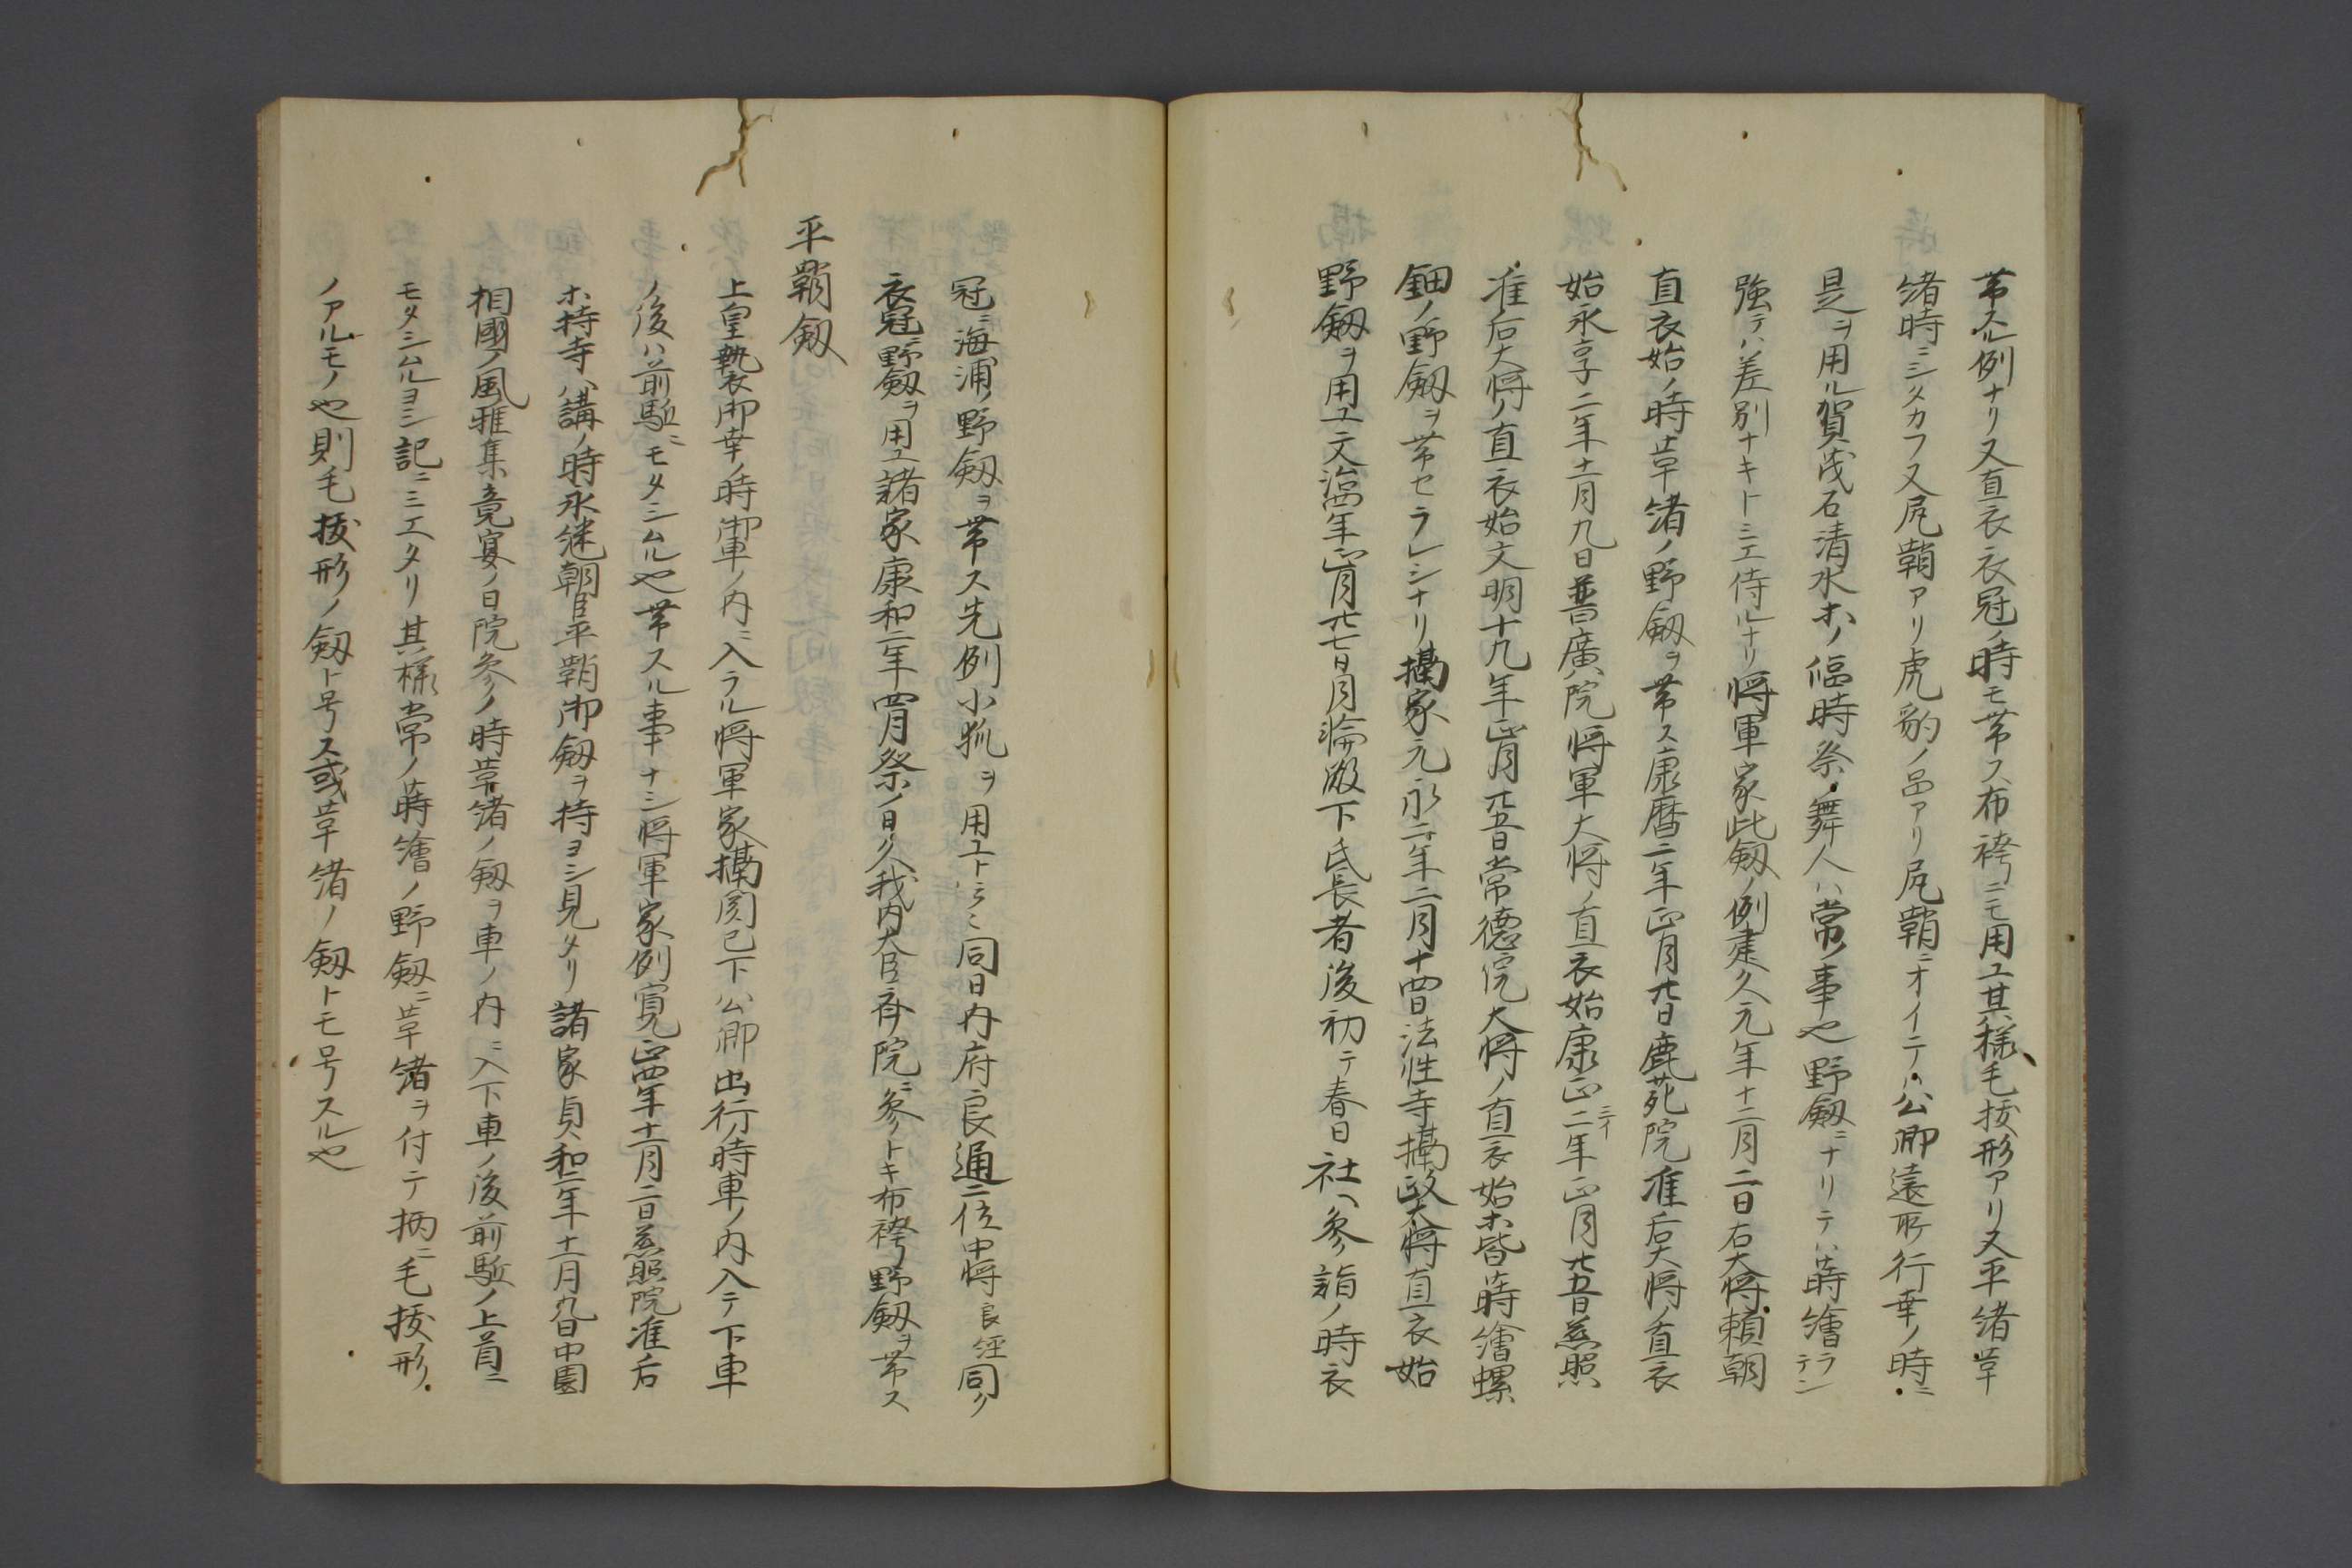 帯スル例ナリ又直衣衣冠ノ時モ帯ス布袴ニモ用ユ其様毛抜形アリ又平緒革
緒時ニシタカフ又尻鞘アリ虎豹ノ品アリ尻鞘ニオイテハ公卿遠所行幸ノ時ニ
是ヲ用ル賀茂石清水ホノ臨時祭ノ舞人ハ常ノ事也野剱ニナリテハ蒔繪ラテン
強テハ差別ナキトミエ侍ルナリ将軍家此剱ノ例建久元年十二月二日右大将頼朝
直衣始ノ時革緒ノ野剱ヲ帯ス康暦二年正月廿日鹿苑院准后大将ノ直衣
始永享二年十一月九日普廣院将軍大将ノ直衣始康正二年三イ正月廿五日慈照
准后大将ノ直衣始文明十九年正月廿五日常德院大将ノ直衣始ホ皆蒔繪螺
鈿ノ野剱ヲ帯セラレシナリ攝家元永二年二月十四日法性寺攝政大将直衣始
野剱ヲ用ユ文治四年正月廿七日月輪殿下氏長者後初テ春日社ヘ參詣ノ時衣
冠ニ海浦ノ野剱ヲ帯ス先例小狐ヲ用ユト云々同日内府良通二位中将良経同ク
衣冠ニ野剱ヲ用ユ諸家康和二年四月祭ノ日久我内大臣斎院ニ參ノトキ布袴ニ野剱ヲ帯ス
平鞘剱
上皇褻御幸ノ時御車ノ内ニ入ラル将軍家攝関已下公卿出行ノ時車ノ内入テ下車
ノ後ハ前駈ニモタシムル也帯スル事ナシ将軍家例寛正四年十一月二日慈照院准后
ホ持寺八講ノ時永継朝臣平鞘御剱ヲ持ヨシ見タリ諸家貞和二年十一月九日中園
相國ノ風雅集竟宴ノ日院參ノ時革緒ノ剱ヲ車ノ内ニ入下車ノ後前駈ノ上首ニ
モタシムルヨシ記ニミエタリ其様常ノ蒔繪ノ野剱ニ革緒ヲ付テ柄ニ毛抜形
ノアルモノ也則毛抜形ノ剱ト号ス或革緒ノ剱トモ号スル也